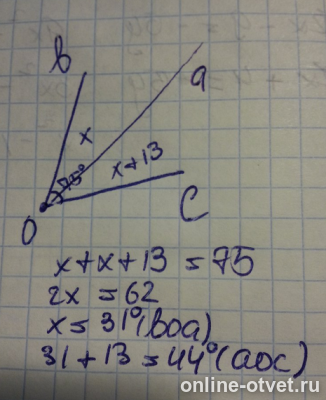 b
a
x
75°
x+13
O
C
x+x+13=75
2x=62
x=31°(boa)
31+13=44°(aoc)
online-otvet.ru